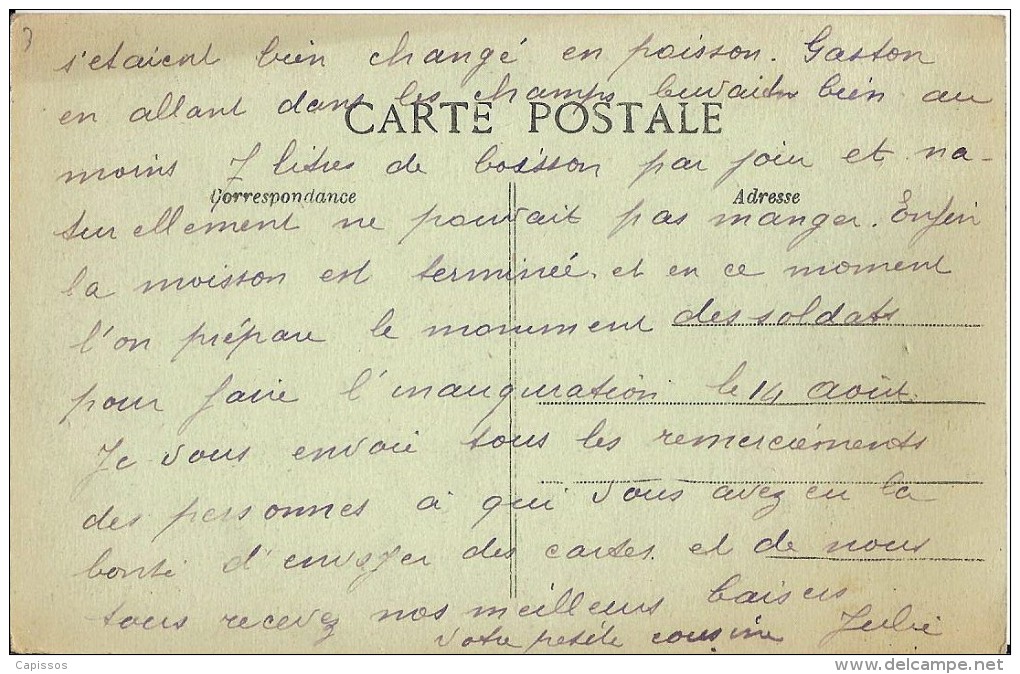 3
s'etaient bien changé en poisson. Gaston
en allant dans les champs buvait bien au
CARTE POSTALE
moins 7 litres de boisson par jour et na-
Correspondance
Adresse
turellement ne pouvait pas manger. Enfin
la moisson est terminée. et en ce moment
l'on prépare le monument des soldats
pour faire l'inauguration le 14 août.
Je vous envoie tous les remerciements
des personnes à qui vous avez eu la
bonté d'envoyer des cartes. et de nous
tous recevez nos meilleurs baisers
votre petite cousine Julie
Capissos
delcampe.net